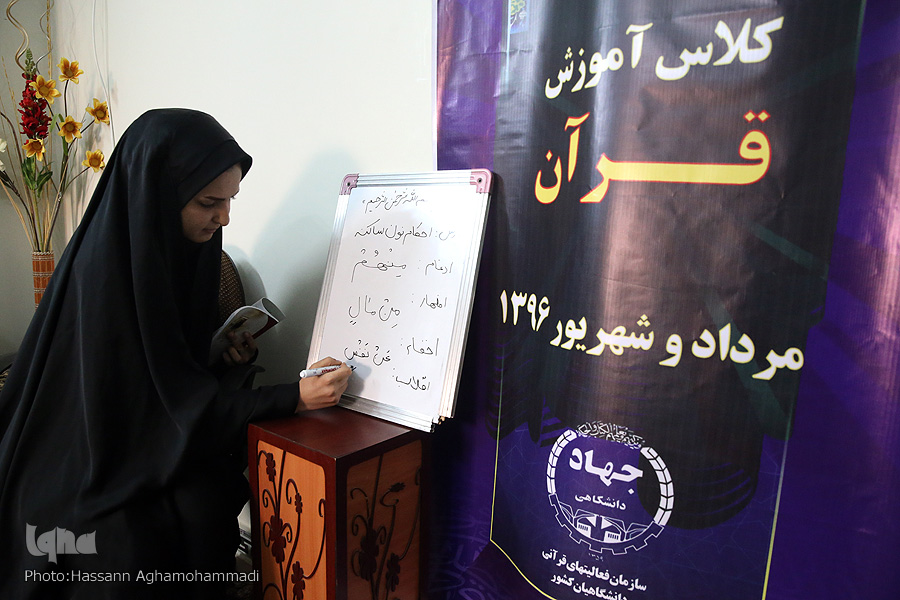 کلاس آموزش
قرآن
مرداد و شهریور ۱۳۹۶
جهاد
دانشگاهی
سازمان فعالیتهای قرآنی
دانشگاهیان کشور
بسم الله الرحمن الرحیم
درس: احکام نون ساکنه
ادغام: مِنْهُمْ
اظهار: مِنْ مٰالٍ
اخفاء: عَنْ نَفْسٍ
اقلاب:
iqna
Photo:Hassann Aghamohammadi